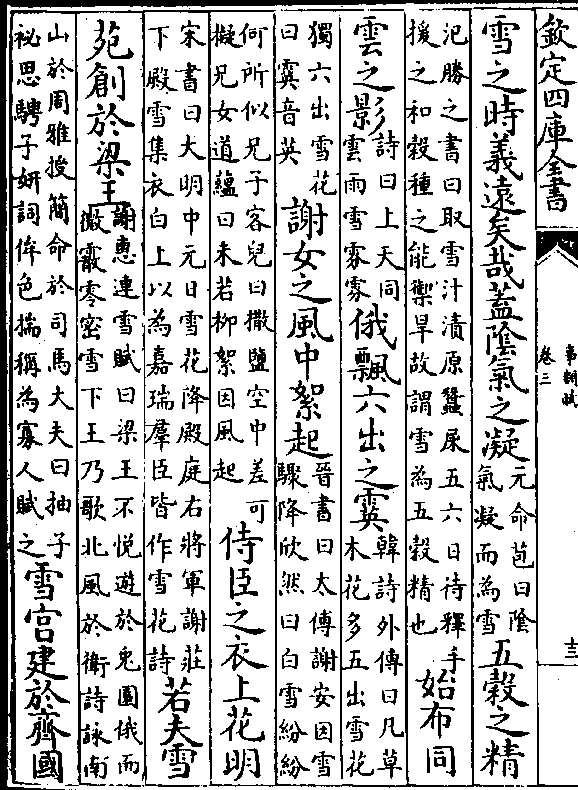 欽定四庫全書
事類賦
卷三
雪之時義遠矣哉蓋陰氣之凝
元命苞曰陰
氣凝而為雪
五穀之精
氾勝之書曰取雪汁漬原蠶屎五六日待釋手
援之和穀種之能禦旱故謂雪為五穀精也
始布同
雲之影
詩曰上天同
雲雨雪雰雰
俄飄六出之霙
韓詩外傳曰凡草
木花多五出雪花
獨六出雪花
曰霙音英
謝女之風中絮起
晉書曰太傅謝安因雪
驟降欣然曰白雪紛紛
何所似兄子客兒曰撒鹽空中差可
擬兄女道蘊曰未若柳絮因風起
侍臣之衣上花明
宋書曰大明中元日雪花降殿庭右將軍謝莊
下殿雪集衣白上以為嘉瑞羣臣皆作雪花詩
若夫雪
苑創於梁王
謝惠連雪賦曰梁王不悅遊於兎園俄而
微霰零密雪下王乃歌北風於衛詩詠南
山於周雅授簡命於司馬大夫曰抽子
祕思騁子妍詞侔色揣稱為寡人賦之
雪宮建於齊國